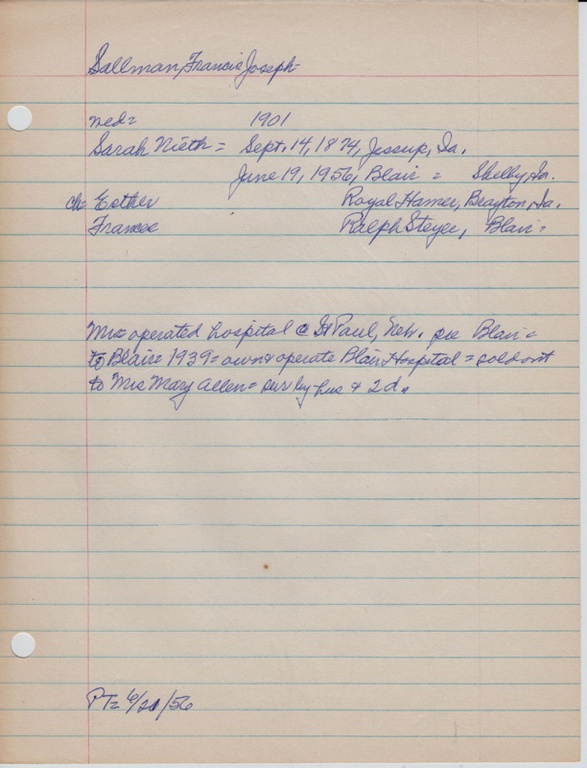 Sallman, Francis Joseph-
wed= 1901
Sarah Nieth= Sept. 14, 1874, Jessup, Ia.
June 19, 1956, Blair = Shelby, Ia.
ch= Esther Royal Hamer, Brayton, Ia.
Frances Ralph Steyer, Blair=
Mr= operated hospital @ St Paul, Neb. pre Blair=
to Blair= 1939= own & operate Blair Hospital = sold out
to Mrs Mary Allen= sur by hus & 2 d.
PT= 6/21/56